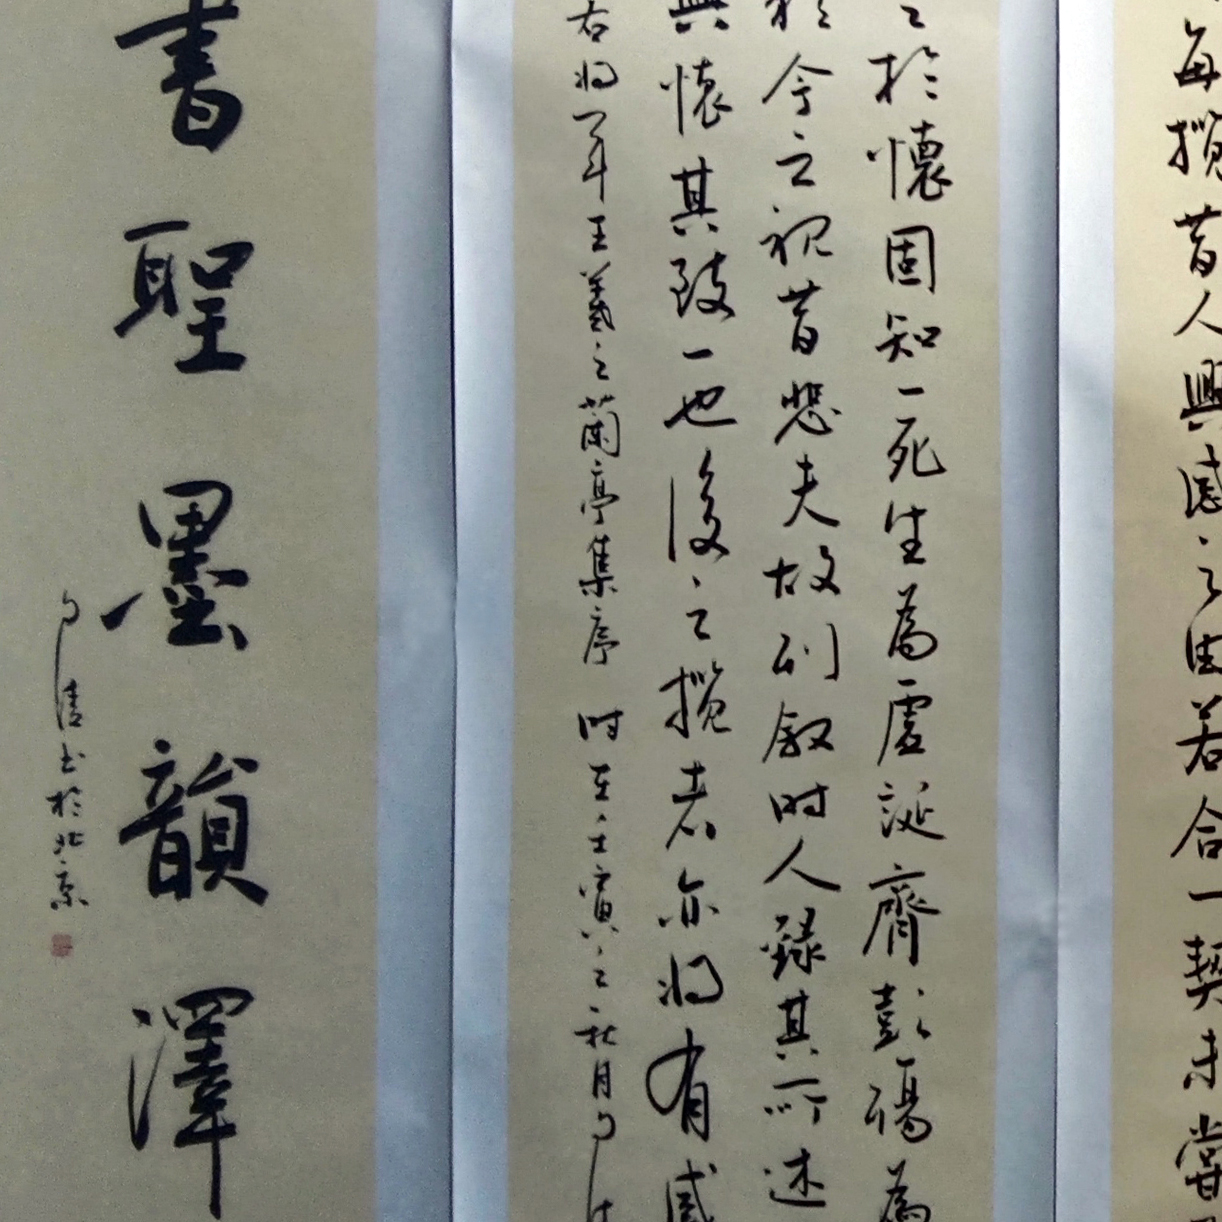 每攬昔人興感之由若合一契未嘗
之於懷固知一死生為虛誕齊彭殤為
於今之視昔悲夫故列敘時人錄其所述
興懷其致一也後之攬者亦將有感
右將軍王羲之蘭亭集序 時在壬寅之秋月
書聖墨韻澤
清书於北京